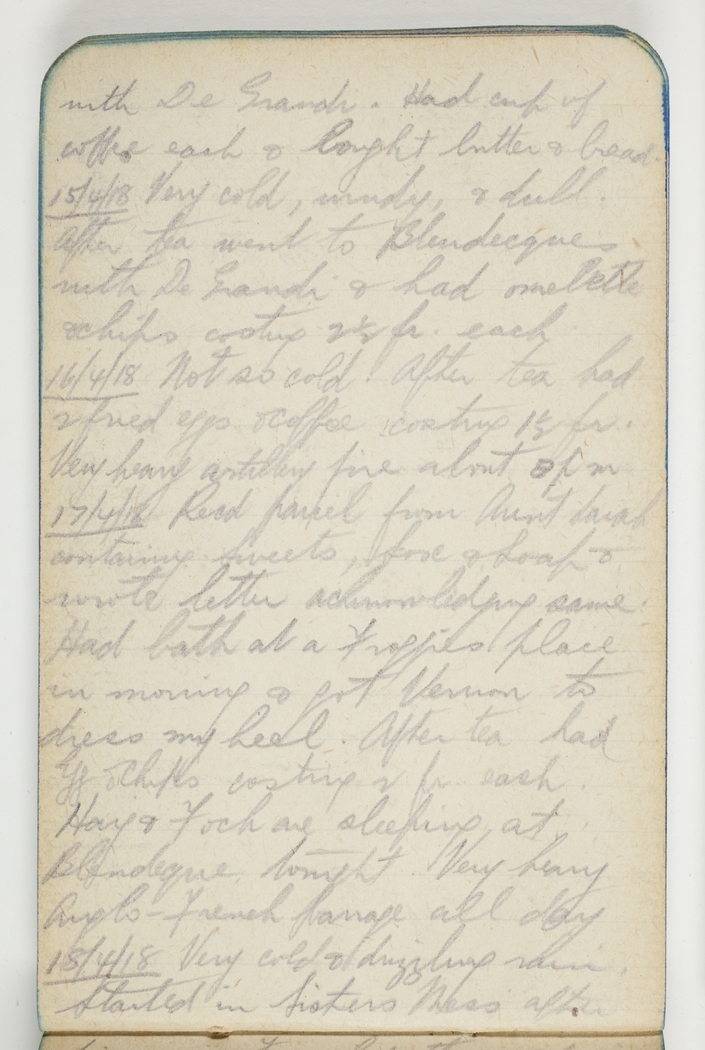 with De Grandi. Had cup of
coffee each & bought butter & bread.
15/4/18 Very cold, windy, & dull.
After tea went to Blendecques
with De Grandi & had omelette
& chips costing 2½ fr. each
16/4/18 Not so cold. After tea had
2 fried eggs & coffee costing 1½ fr.
Very heavy artillery fire about 8 p m
17/4/18 Recd parcel from Aunt Sarah
containing sweets, & soap &
wrote letter acknowledging same.
Had bath at a Froggies place
in morning & got Vernon to
dress my heel. After tea had
& chips costing 2 fr. each.
Hay & Foch are sleeping at
Blendeque tonight. Very heavy
Anglo-French barrage all day
18/4/18 Very cold & drizzling rain.
Started in Sisters Mess after